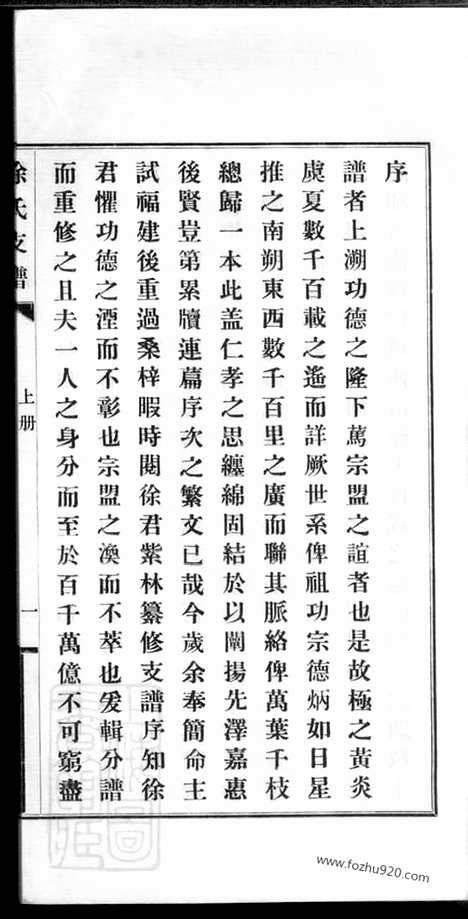 序
譜者上溯功德之隆下篤宗盟之誼者也是故極之黃炎
虞夏數千百載之遙而詳厥世系俾祖功宗德炳如日星
推之南朔東西數千百里之廣而聯其脈絡俾萬葉千枝
總歸一本此盖仁孝之思纏綿固結於以闡揚先澤嘉惠
後賢豈第累牘連篇序次之繁文已哉今歲余奉簡命主
試福建後重過桑梓暇時閱徐君紫林纂修支譜序知徐
君懼功德之湮而不彰也宗盟之渙而不萃也爰輯分譜
而重修之且夫一人之身分而至於百千萬億不可窮盡
徐氏支譜
上册
一
www.fozhu920.com